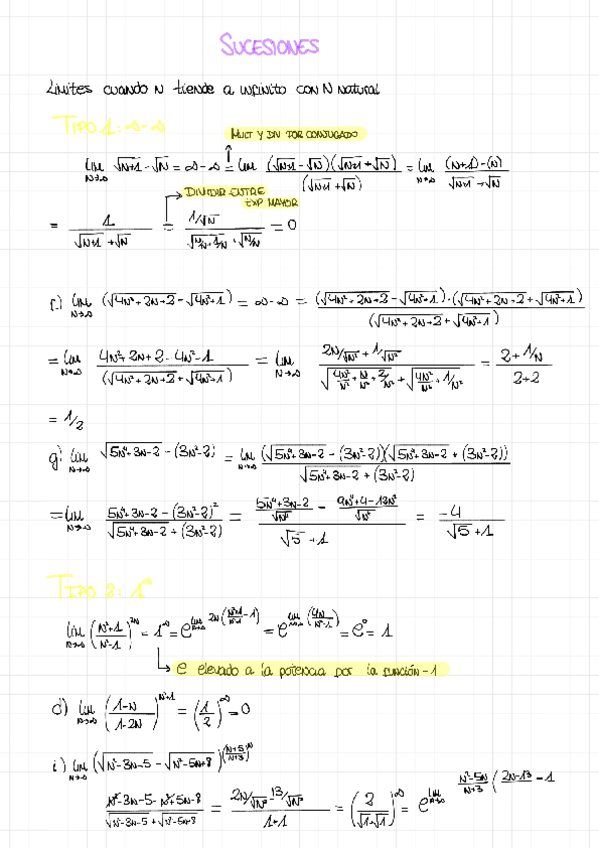 SUCESIONES
Límites cuando N tiende a infinito con N natural
TIPO 1: ∞-∞
MULT Y DIV POR CONJUGADO
lim N→∞ √(N+1) - √N = ∞-∞ = lim (√(N+1) - √N)(√(N+1) + √N) / (√(N+1) + √N) = lim N→∞ (N+1)-(N) / √(N+1) + √N
DIVIDIR ENTRE
EXP MAYOR
= 1 / √(N+1) + √N = 1/√N / √(N/N + 1/N) + √(N/N) = 0
f.) lim N→∞ (√(4N²+2N+2) - √(4N²+1)) = ∞-∞ = (√(4N²+2N+2) - √(4N²+1))·(√(4N²+2N+2) + √(4N²+1)) / (√(4N²+2N+2) + √(4N²+1))
= lim N→∞ 4N²+2N+2-4N²-1 / (√(4N²+2N+2) + √(4N²+1)) = lim N→∞ 2N/√N² + 1/√N² / √(4N²/N² + N/N² + 2/N²) + √(4N²/N² + 1/N²) = 2+1/N / 2+2
= 1/2
g) lim N→∞ √(5N⁴+3N-2) - (3N²-2) = lim N→∞ (√(5N⁴+3N-2) - (3N²-2))(√(5N⁴+3N-2) + (3N²-2)) / √(5N⁴+3N-2) + (3N²-2)
= lim N→∞ 5N⁴+3N-2-(3N²-2)² / √(5N⁴+3N-2) + (3N²-2) = 5N⁴+3N-2 / √N⁴ - 9N⁴+4-12N² / √N⁴ / √5+1 = -4 / √5+1
TIPO 2: 1^∞
lim N→∞ (N²+1 / N²-1)^2N = 1^∞ = e^lim N→∞ 2N(N²+1 / N²-1 - 1) = e^lim N→∞ (4N / N²-1) = e⁰ = 1
e elevado a la potencia por la función - 1
d) lim N→∞ (1-N / 1-2N)^N²+1 = (1/2)^∞ = 0
i) lim N→∞ (√(N²-3N-5) - √(N²-5N+8))^(N+5 / N+3)
N²-3N-5-N²+5N-8 / √(N²-3N-5) + √(N²-5N+8) = 2N/√N² - 13/√N² / 1+1 = (2 / √1+√1)^∞ = e^lim N→∞ N²-5N / N+3 (2N-13 - 1